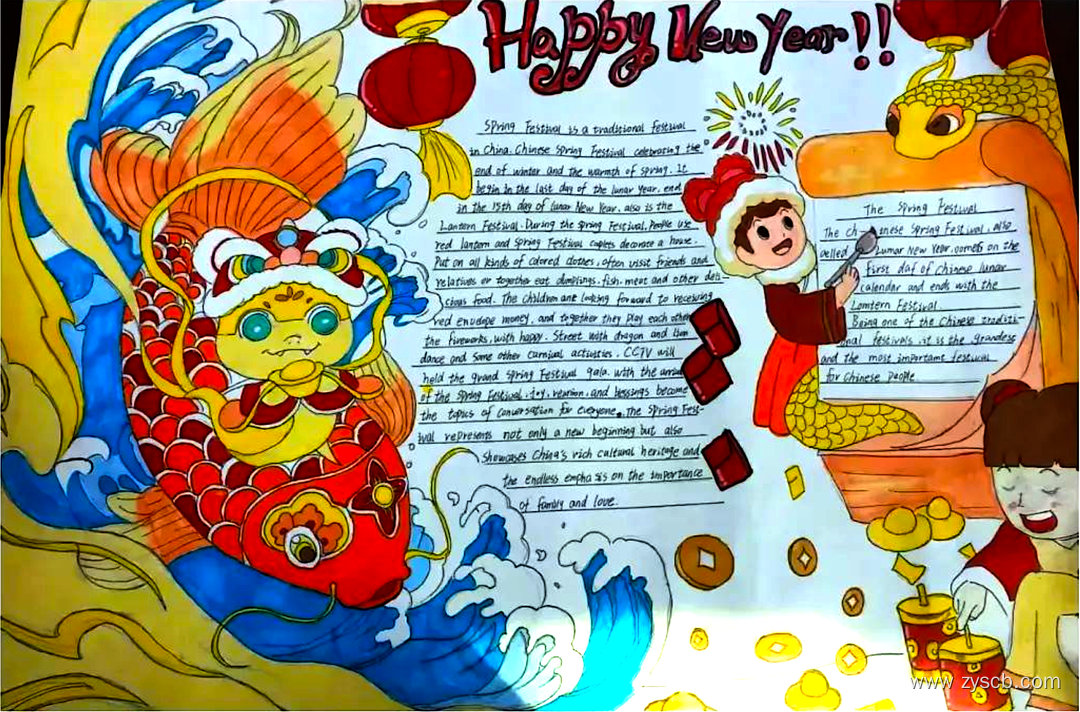 Happy New Year!!
Spring Festival is a traditional festival
in China. Chinese Spring Festival celebrating the
end of winter and the warmth of spring. It
begin in the last day of the lunar year, end
in the 15th day of lunar New Year, also is the
Lantern Festival. During the spring Festival, People use
red lantern and Spring Festival cuplets decorate a house.
Put on all kinds of colored clothes, often visit friends and
relatives or together eat dumplings, fish, meat and other deli
cious food. The children are looking forward to receiving
red envelope money, and together they play each other
the fireworks, with happy. Street with dragon and lion
dance and some other carnival activities. CCTV will
held the grand Spring Festival gala. With the
of the Spring Festival, joy, reunion, and blessings become
the topics of conversation for everyone. The Spring Fest-
ival represents not only a new beginning but also
showcases China's rich cultural heritage and
the endless emphasis on the importance
of family and love.
The Spring Festival
The ch-inese Spring Festival, also
Lunar New Year, on the
first day of Chinese lunar
calendar and ends with the
Lomtern Festival
Being one of the Chinese traditi-
onal festivals, it is the grandest
and the most important festival
for Chinese People
www.zyscb.com